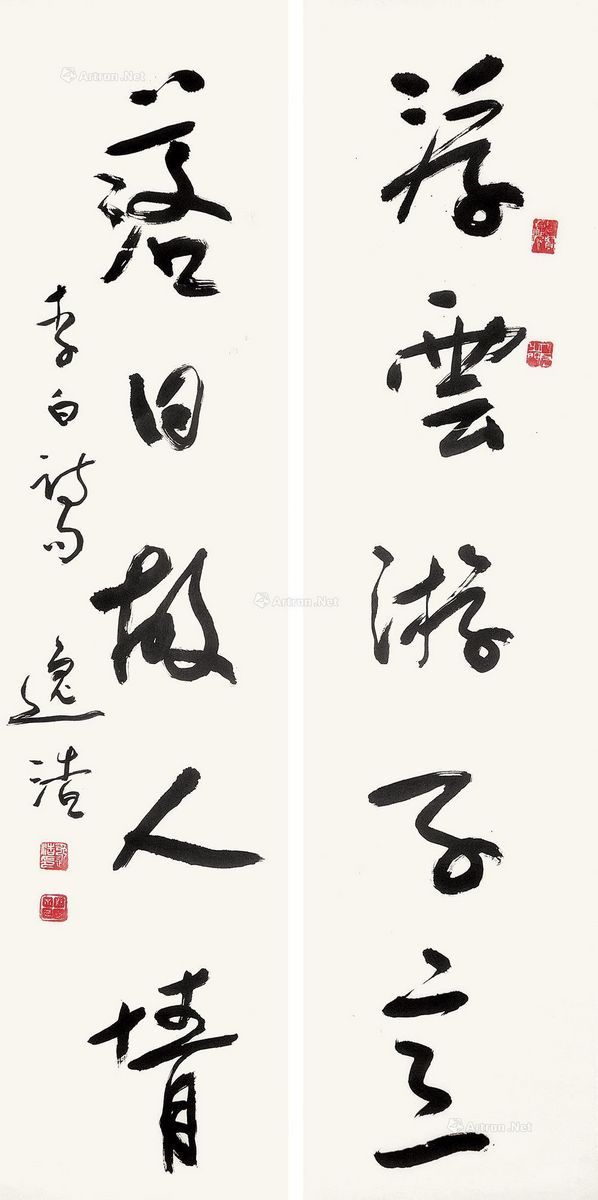 浮雲游子意
落日故人情
李白詩句 逸
Artron.Net
Artron.Net
Artron.Net